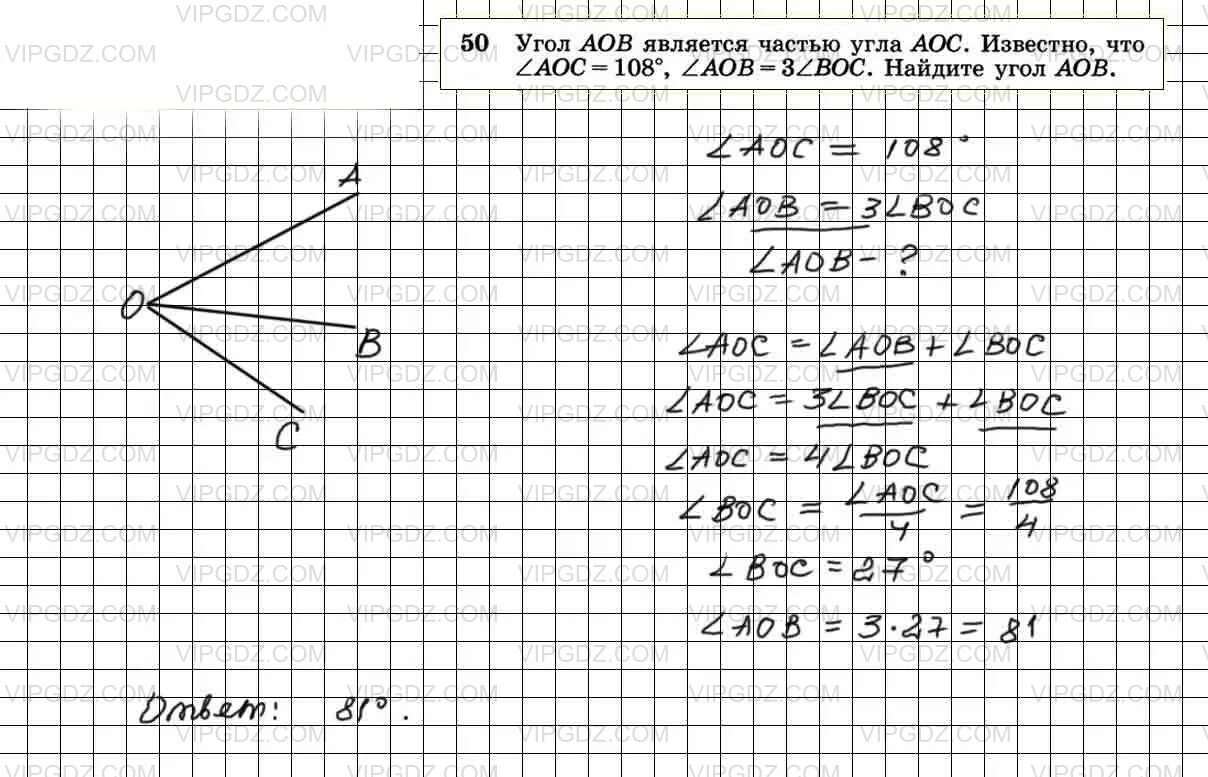 50 Угол AOB является частью угла AOC. Известно, что
∠AOC = 108°, ∠AOB = 3∠BOC. Найдите угол AOB.
∠AOC = 108°
∠AOB = 3∠BOC
∠AOB - ?
A
O
B
C
∠AOC = ∠AOB + ∠BOC
∠AOC = 3∠BOC + ∠BOC
∠AOC = 4∠BOC
∠BOC = ∠AOC/4 = 108/4
∠BOC = 27°
∠AOB = 3·27 = 81
Ответ: 81°.
VIPGDZ.COM